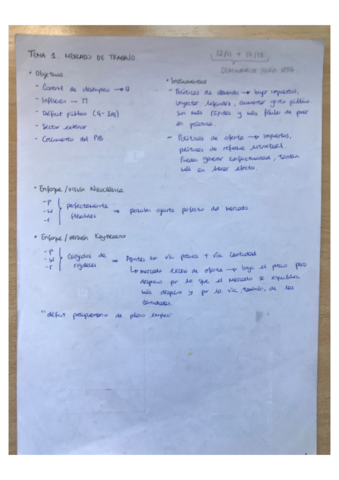 TEMA 1. MERCADO DE TRABAJO
• Objetivos
- Control de desempleo → U
- Inflación → π
- Déficit público
- Sector exterior
- Crecimiento del PIB
• Instrumentos
- Políticas de demanda → bajo impuestos,
inyectar liquidez, aumentar gasto público
Son más rápidas y más fáciles de poner
en práctica.
- Políticas de oferta → impuestos,
políticas de reforma estructural.
Pueden generar conflictividad, tardan
más en tener efecto.
• Enfoque/visión Neoclásica
- P
- W
- r
perfectamente
flexibles → ajuste perfecto del mercado
• Enfoque/versión Keynesiano
- P
- W
- r
de
rigideces → Ajustes no vía precios + vía cantidad
↳ mercado exceso de oferta → baja el precio pero
despacio por lo que el mercado se equilibra
más despacio y por la vía, también, de las
cantidades.
déficit presupuestario de pleno empleo